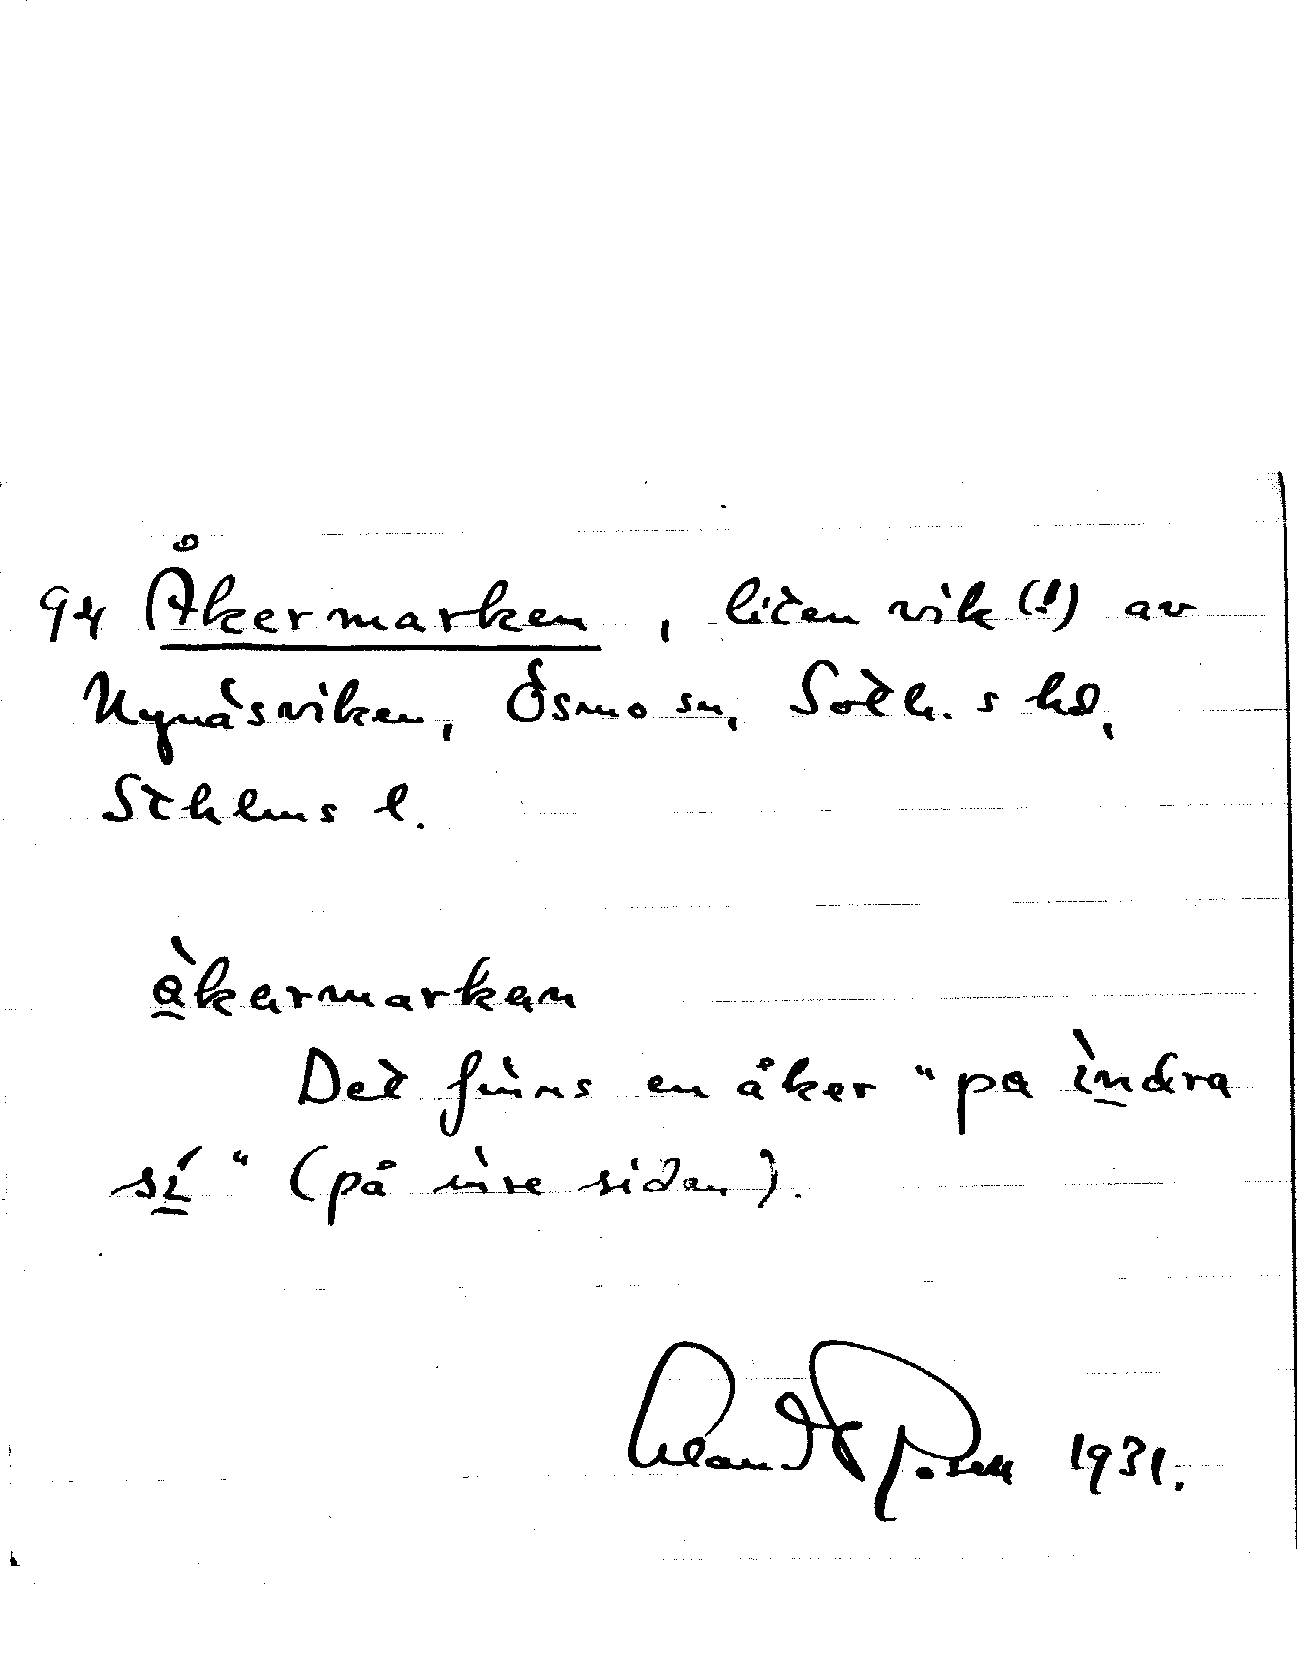 94 Åkermarken, liten vik (!) av
Nynäsviken, Ösmo sn, Soth. s hd,
Sthlms l.
åkarmarkan
Det finns en åker "pa ìndra
sí" (på inre sidan).
Rosen 1931.